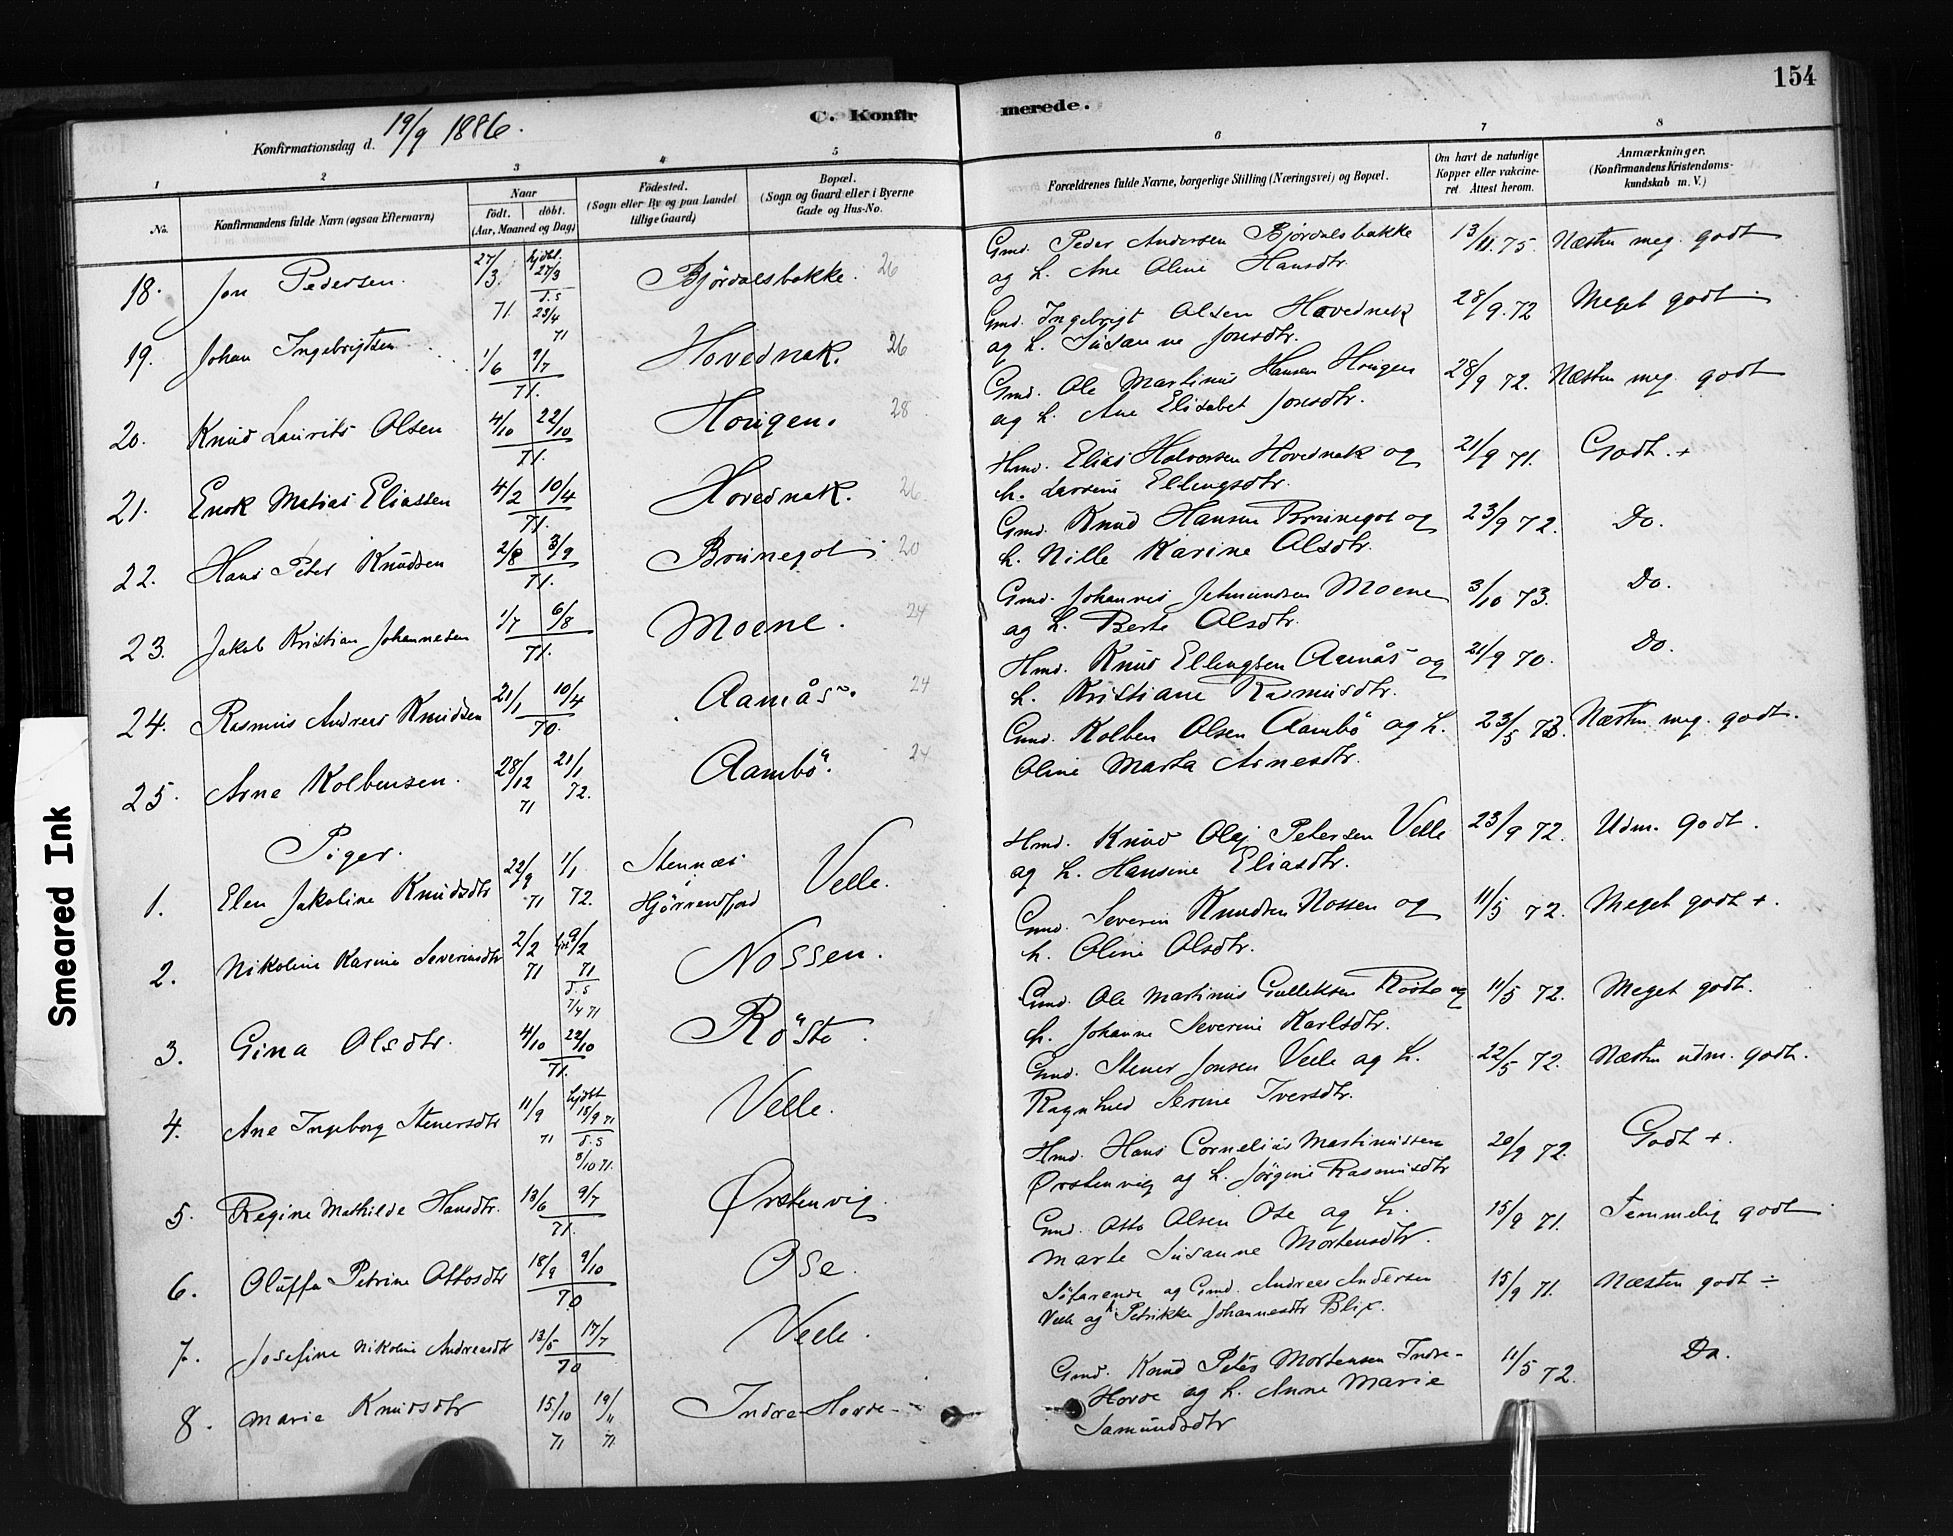 154
C. Konfirmerede.
Konfirmationsdag d. 19/9 1886.
1 2 3 4 5 6 7 8
No.
Konfirmandens fulde Navn (ogsaa Efternavn)
Naar
født. døbt.
(Aar, Maaned og Dag)
Fødested.
(Sogn eller By og paa Landet
tillige Gaard)
Bopæl.
(Sogn og Gaard eller i Byerne
Gade og Hus-No.
Forældrenes fulde Navne, borgerlige Stilling (Næringsvei) og Bopæl.
Om havt de naturlige
Kopper eller vakcineret
Attest herom.
Anmærkninger.
(Konfirmandens Kristendomskundskab
m. V.)
18. Jon Pedersen. 27/3 71 hjdbt. 27/3 d. S 23/4 71 Bjørdalsbakke. 26
Gmd. Peder Andersen Bjørdalsbakke
og h. Ane Oline Hansdtr.
13/11. 75. Næsten meg. godt
19. Johan Ingebrigtsen 1/6 9/7 71. Hovednak. 26
Gmd. Ingebrigt Olsen Hovednak
og h. Susanne Jonsdtr.
28/9. 72 Meget godt.
20. Knud Laurits Olsen 4/10 22/10 71. Hougen. 28
Gmd. Ole Martinus Hansen Hougen
og h. Ane Elisabet Jonsdtr.
28/9 72. Næsten meg. godt
21. Enok Matias Eliassen 4/2 10/4 71. Hovednak. 26
Hmd. Elias Halvorsen Hovednak og
h. Larsine Ellingsdtr.
21/9 71. Godt. +
22. Hans Peter Knudsen 2/8 3/9 71. Brunegot 20
Gmd. Knud Hansen Brunegot og
h. Nille Karine Olsdtr.
23/9 72. Do.
23. Jakob Kristian Johannesen 1/7 6/8 71. Moene. 24
Gmd. Johannes Jetmundsen Moene
og h. Berte Olsdtr.
3/10 73. Do.
24. Rasmus Andreas Knudsen 21/1 10/4 70. Aamås. 24
Hmd. Knud Ellingsen Aamås og
h. Kristiane Rasmusdtr.
21/9 70. Do.
25. Arne Kolbensen. 28/12 71 21/1 72. Aambö. 24
Gmd. Kolben Olsen Aambö og h.
Oline Marta Arnesdtr.
23/5 73. Næsten meg. godt.
Piger.
1. Elen Jakoline Knudsdtr 22/9 71 1/1 72. Stennæs
Hjørrendfjord Velle.
Hmd. Knud Olaj Petersen Velle
og h. Hansine Eliasdtr.
23/9 72. Udm. godt.
2. Nikoline Karine Severinsdtr 2/2 71 9/2 71 d. S 7/4 71 Nossen.
Gmd. Severin Knudsen Nossen og
h. Oline Olsdtr.
11/5 72. Meget godt +.
3. Gina Olsdtr. 4/10 22/10 71. Röste.
Gmd. Ole Martinus Gulleksen Röste og
h. Johanne Severine Karlsdtr.
11/5 72. Meget godt.
4. Ane Ingeborg Stenersdtr 11/9 71 hjdbt 15/9 71 d. S 8/10 71. Velle.
Gmd. Stener Jonsen Velle og h.
Ragnhild Serine Iversdtr.
22/5 72. Næsten udm. godt.
5. Regine Mathilde Hansdtr. 13/6 9/7 71. Ørstenvig
Hmd. Hans Cornelius Martinussen
Ørstenvig og h. Jørgine Rasmusdtr
20/9 72. Godt +.
6. Oluffa Petrine Ottosdtr 18/9 9/10 70 Ose.
Gmd. Otto Olsen Ose og h.
Marte Susanne Mortensdtr.
15/9 71. Temmelig godt
7. Josefine Nikoline Andreasdtr 13/5 17/7 70 Velle.
Söfarende og Gmd. Andreas Andersen
Velle og h. Petrikke Johannesdtr Blix.
15/9 71. Næsten godt ÷
8. Marie Knudsdtr 15/10 71 19/11 71. Indre-Hovde-
Gmd. Knud Peter Mortensen Indre-
Hovde og h. Anne Marie
Samundsdtr
11/5 72. Do.
Smeared Ink